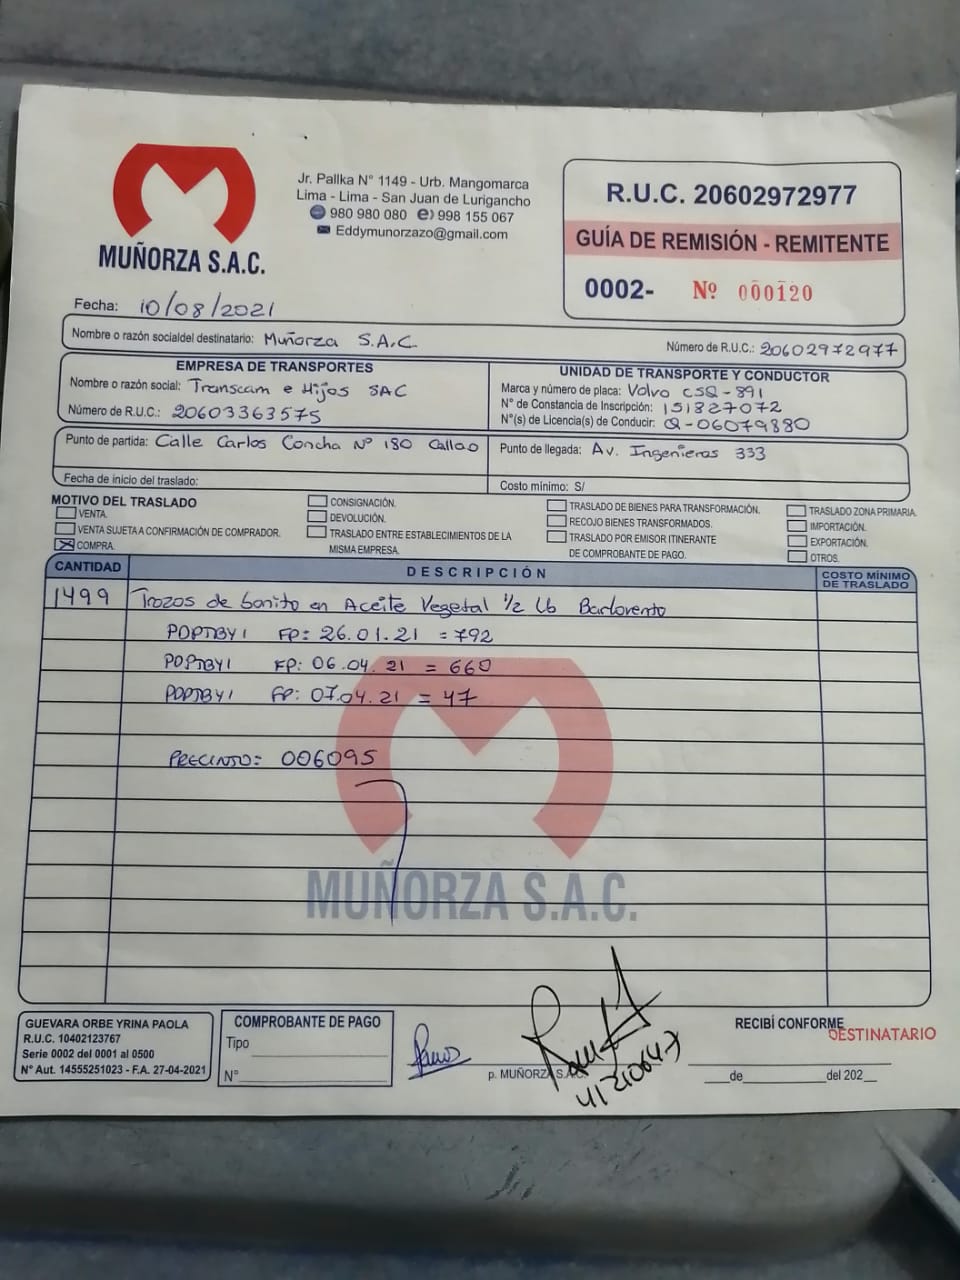 MUÑORZA S.A.C.
Jr. Pallka N° 1149 - Urb. Mangomarca
Lima - Lima - San Juan de Lurigancho
980 980 080 e) 998 155 067
Eddymunorzazo@gmail.com
R.U.C. 20602972977
GUÍA DE REMISIÓN - REMITENTE
0002- Nº 000120
Fecha: 10/08/2021
Nombre o razón socialdel destinatario: Muñorza S.A.C. Número de R.U.C.: 20602972977
EMPRESA DE TRANSPORTES
Nombre o razón social: Transcam e Hijos SAC
Número de R.U.C.: 20603363575
UNIDAD DE TRANSPORTE Y CONDUCTOR
Marca y número de placa: Volvo CSQ-891
N° de Constancia de Inscripción: 151827072
N°(s) de Licencia(s) de Conducir: Q-06079880
Punto de partida: Calle Carlos Concha Nº 180 Callao
Fecha de inicio del traslado:
Punto de llegada: Av. Ingenieros 333
Costo mínimo: S/
MOTIVO DEL TRASLADO
VENTA.
VENTA SUJETA A CONFIRMACIÓN DE COMPRADOR.
COMPRA.
CONSIGNACIÓN.
DEVOLUCIÓN.
TRASLADO ENTRE ESTABLECIMIENTOS DE LA
MISMA EMPRESA.
TRASLADO DE BIENES PARA TRANSFORMACIÓN.
RECOJO BIENES TRANSFORMADOS.
TRASLADO POR EMISOR ITINERANTE
DE COMPROBANTE DE PAGO.
TRASLADO ZONA PRIMARIA.
IMPORTACIÓN.
EXPORTACIÓN.
OTROS.
CANTIDAD DESCRIPCIÓN COSTO MÍNIMO
DE TRASLADO
1499 Trozos de bonito en Aceite Vegetal 1/2 Lb Barlovento
FP: 26.01.21 = 792
FP: 06.04.21 = 660
FP: 07.04.21 = 47
PRECINTO: 006095
MUÑORZA S.A.C.
GUEVARA ORBE YRINA PAOLA
R.U.C. 10402123767
Serie 0002 del 0001 al 0500
N° Aut. 14555251023 - F.A. 27-04-2021
COMPROBANTE DE PAGO
Tipo
N°
p. MUÑORZA S.A.C.
41210647
RECIBÍ CONFORME
DESTINATARIO
de del 202